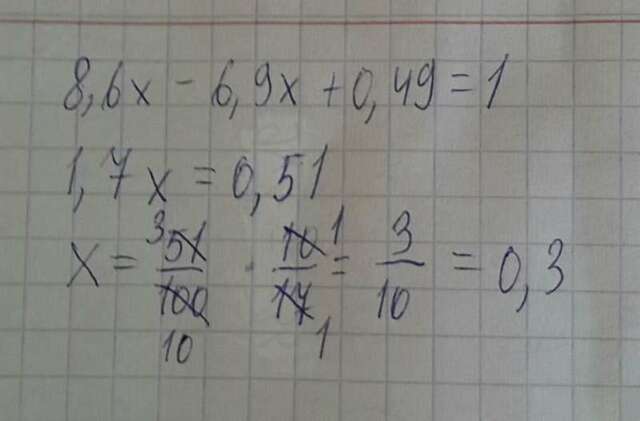 8,6x - 6,9x + 0,49 = 1
1,7x = 0,51
x = 51/100 · 10/17 = 3/10 = 0,3
3 1
10 1